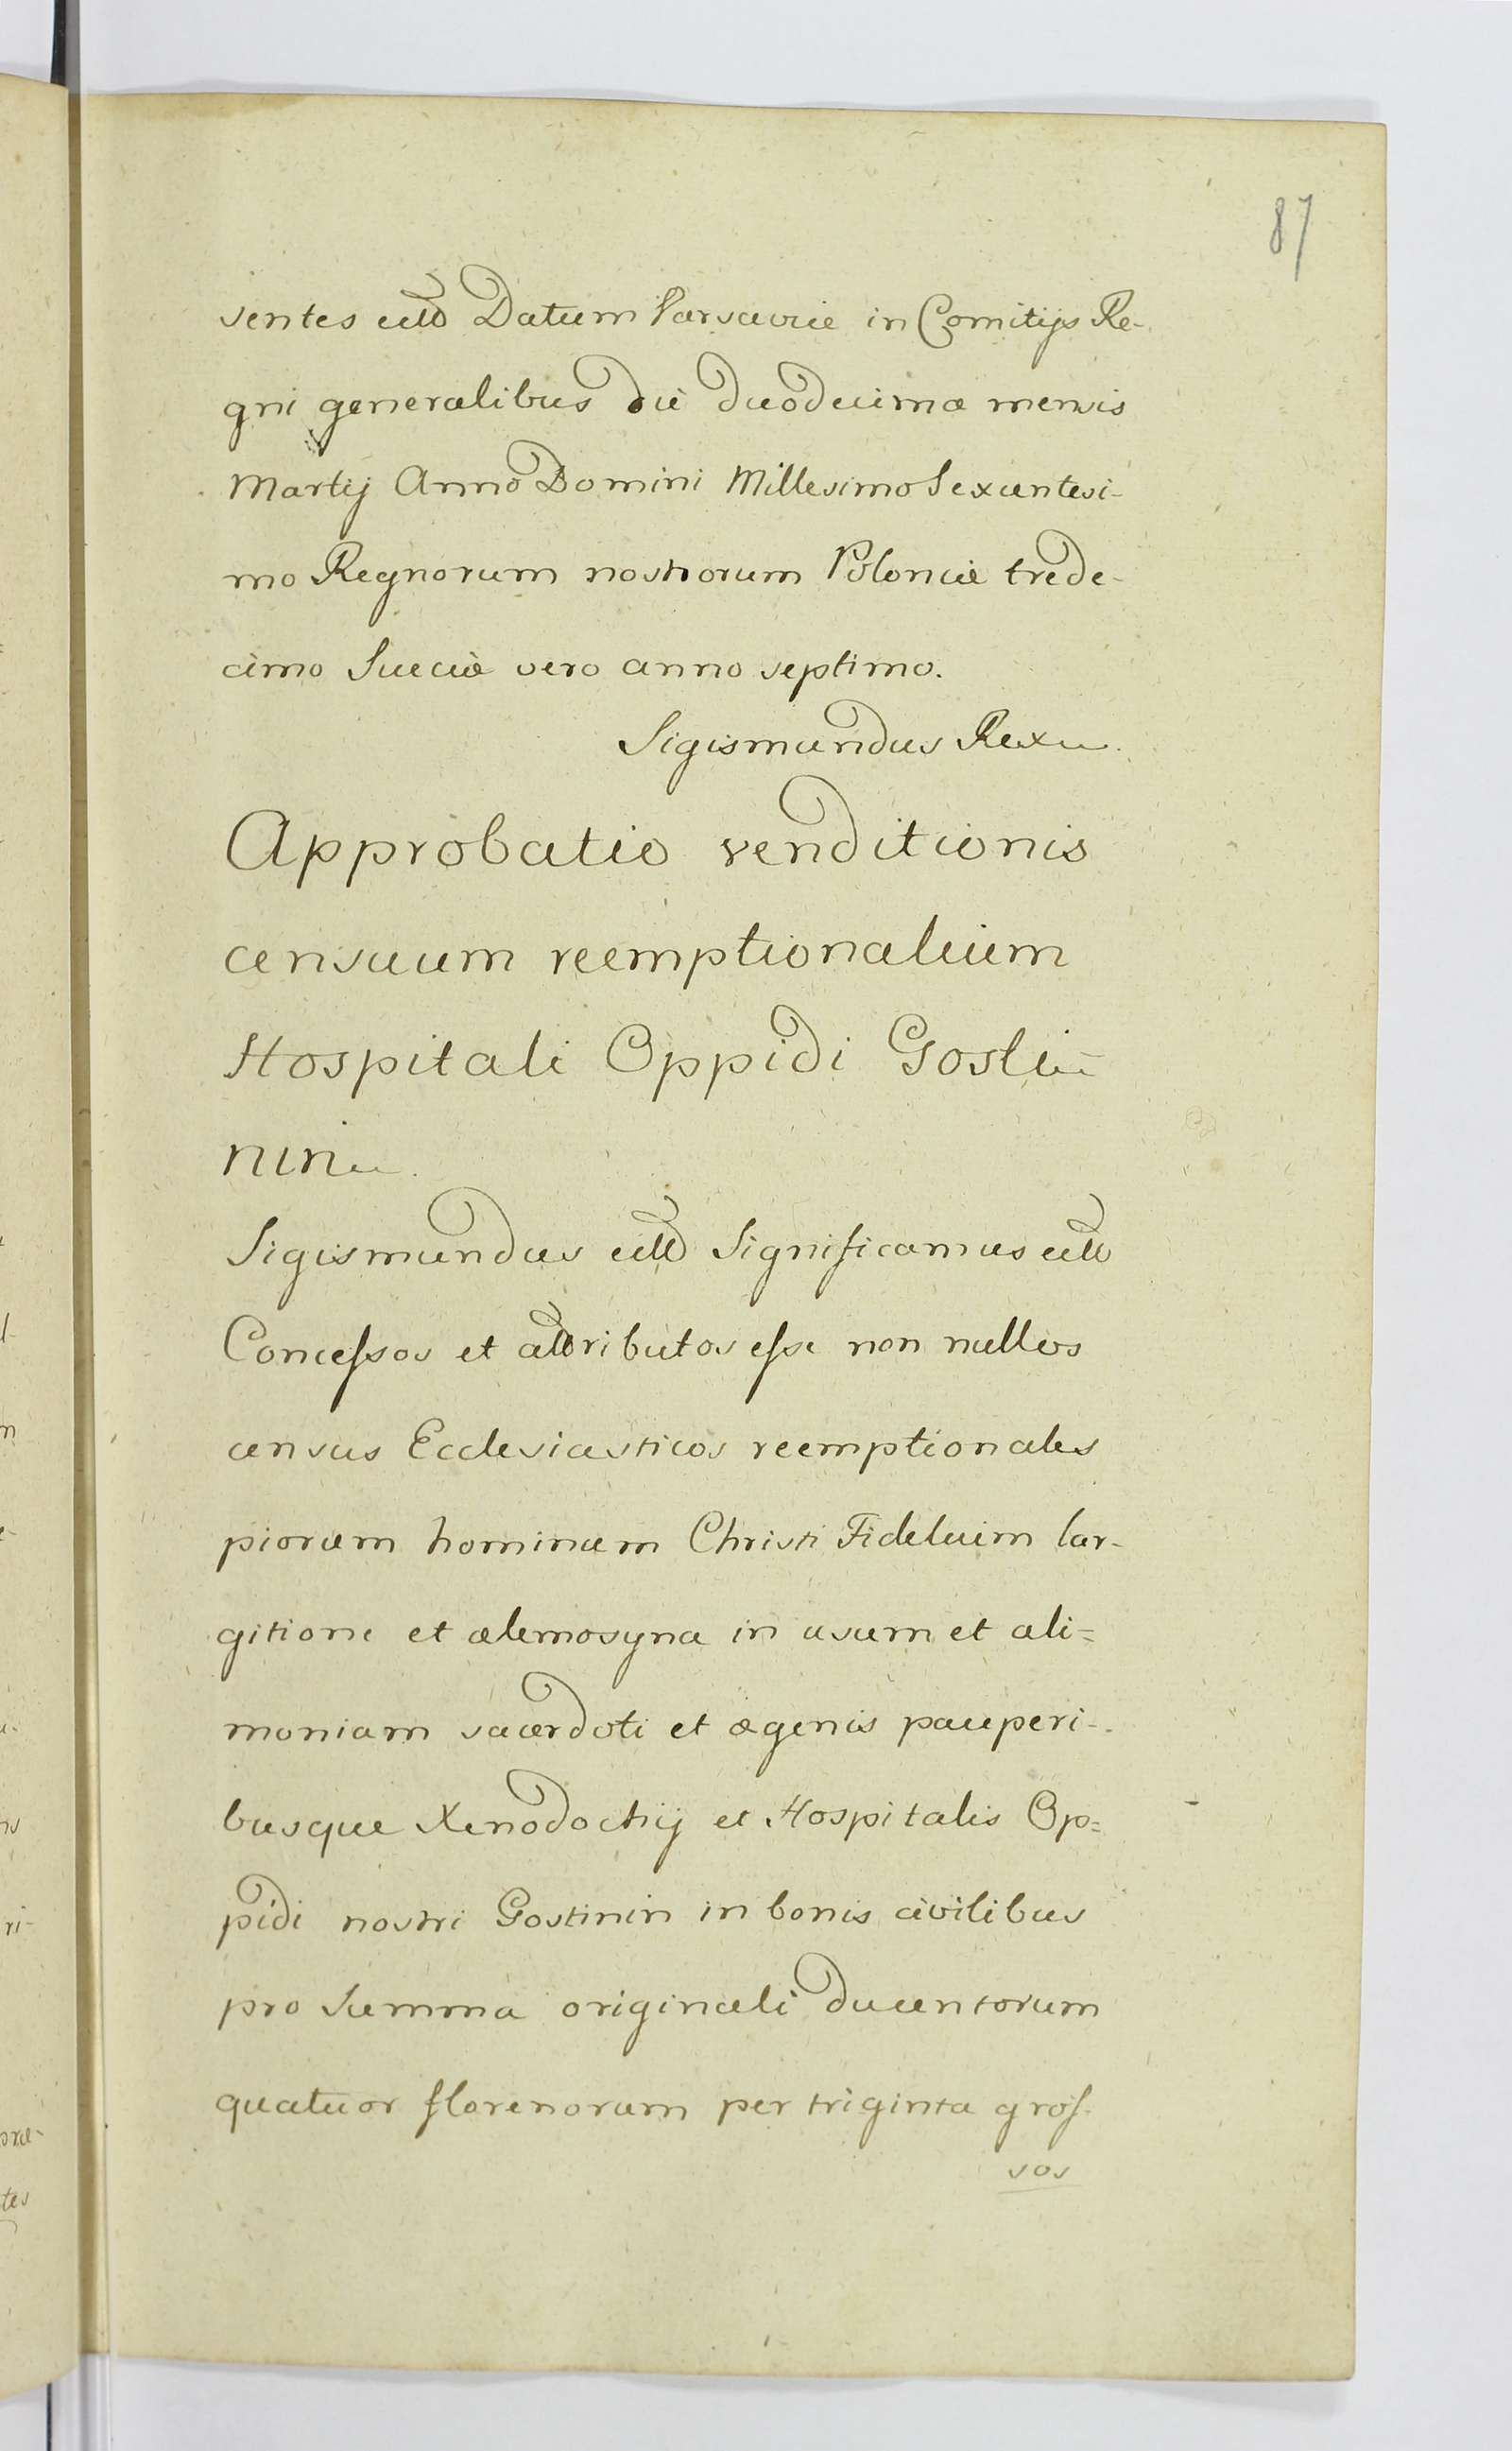 87
sentes etc Datum Varsaviæ in Comitijs Re-
gni generalibus die duodecima mensis
Martij Anno Domini Millesimo Sexcentesi-
mo Regnorum nostrorum Poloniæ trede-
cimo Sueciæ vero anno septimo.
Sigismundus Rex
Approbatio venditionis
censuum reemptionalium
Hospitali Oppidi Gosti-
nin
Sigismundus etc Significamus etc
Concessos et attributos esse non nullos
census Ecclesiasticos reemptionales
piorum hominum Christi Fidelium lar-
gitione et elemosyna in usum et ali=
moniam sacerdoti et egenis pauperi-
busque Xenodochij et Hospitalis Op=
pidi nostri Gostinin in bonis civilibus
pro summa originali ducentorum
quatuor florenorum per triginta gros-
sos